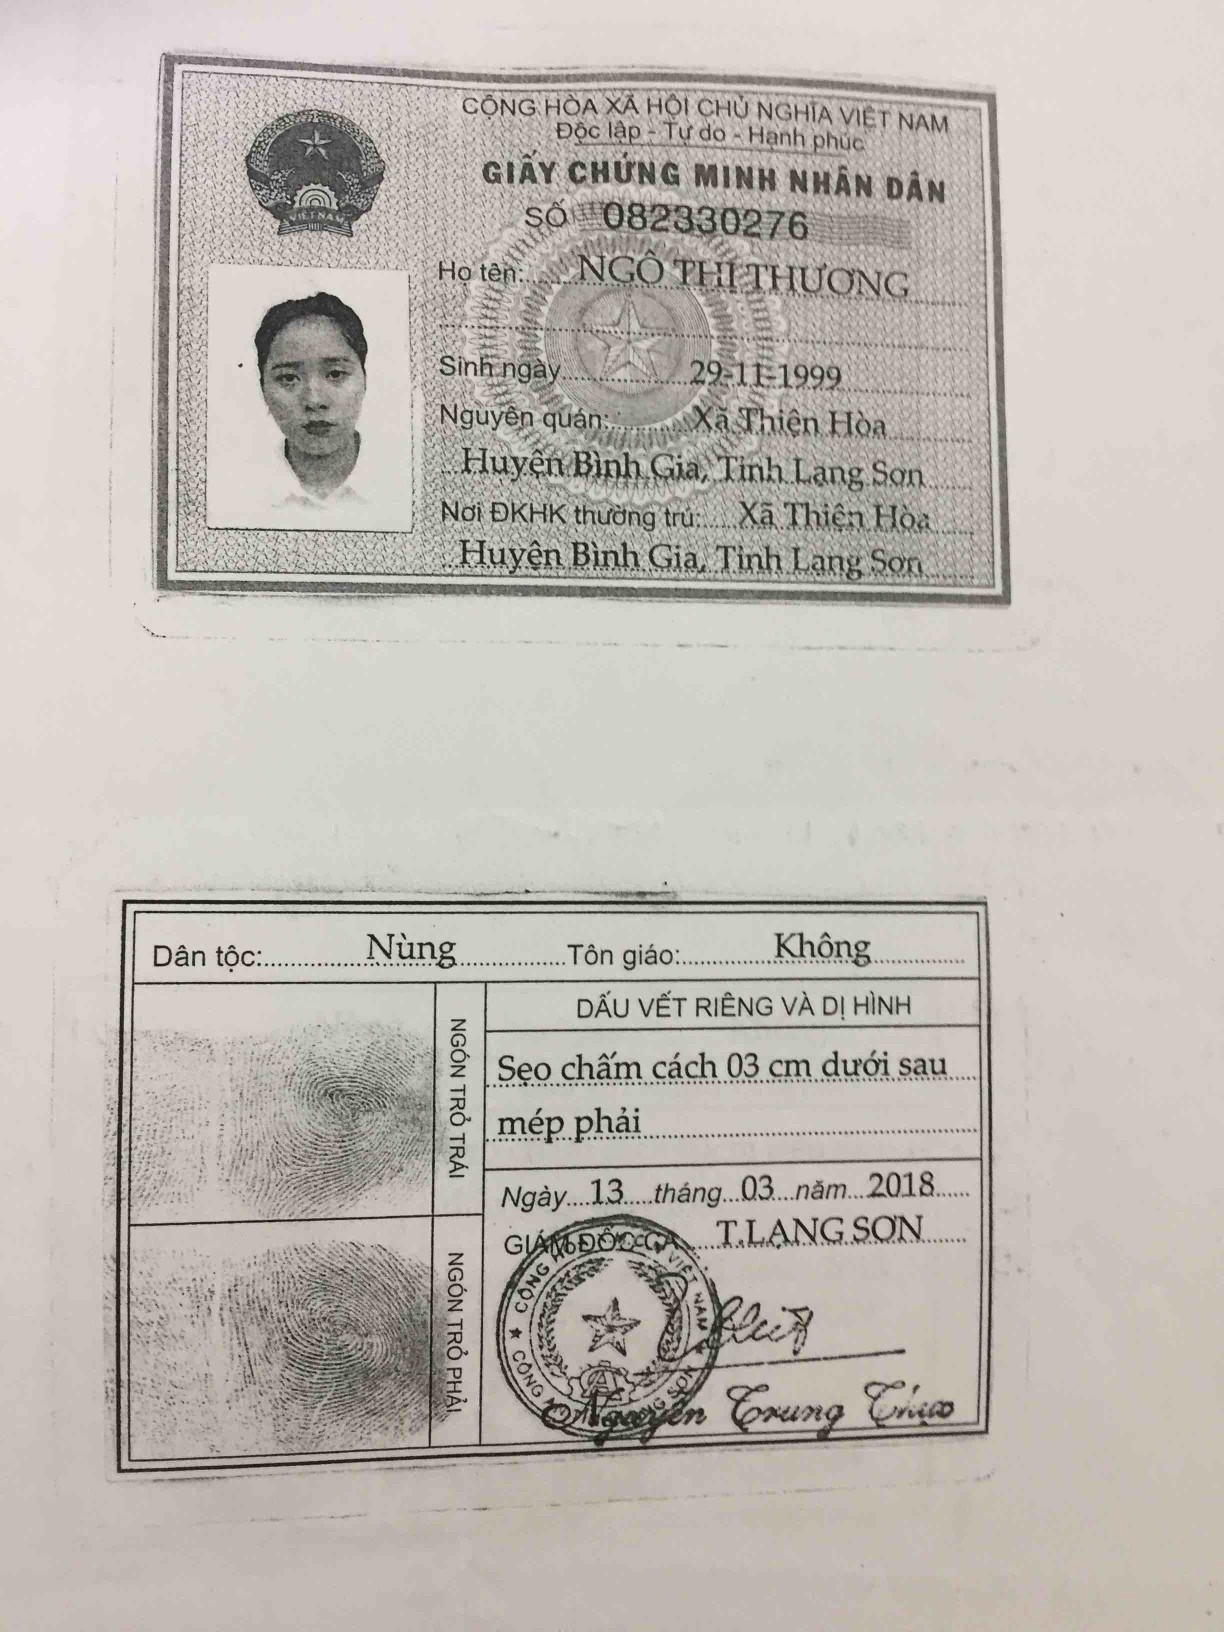 CỘNG HÒA XÃ HỘI CHỦ NGHĨA VIỆT NAM
Độc lập - Tự do - Hạnh phúc
GIẤY CHỨNG MINH NHÂN DÂN
SỐ 082330276
VIỆT NAM
Họ tên: NGÔ THỊ THƯƠNG
Sinh ngày 29-11-1999
Nguyên quán: Xã Thiện Hòa
Huyện Bình Gia, Tỉnh Lạng Sơn
Nơi ĐKHK thường trú: Xã Thiện Hòa
Huyện Bình Gia, Tỉnh Lạng Sơn
Dân tộc: Nùng Tôn giáo: Không
NGÓN TRỎ TRÁI
NGÓN TRỎ PHẢI
DẤU VẾT RIÊNG VÀ DỊ HÌNH
Sẹo chấm cách 03 cm dưới sau
mép phải
Ngày 13 tháng 03 năm 2018
GIÁM ĐỐC CA T.LẠNG SƠN
Nguyễn Trung